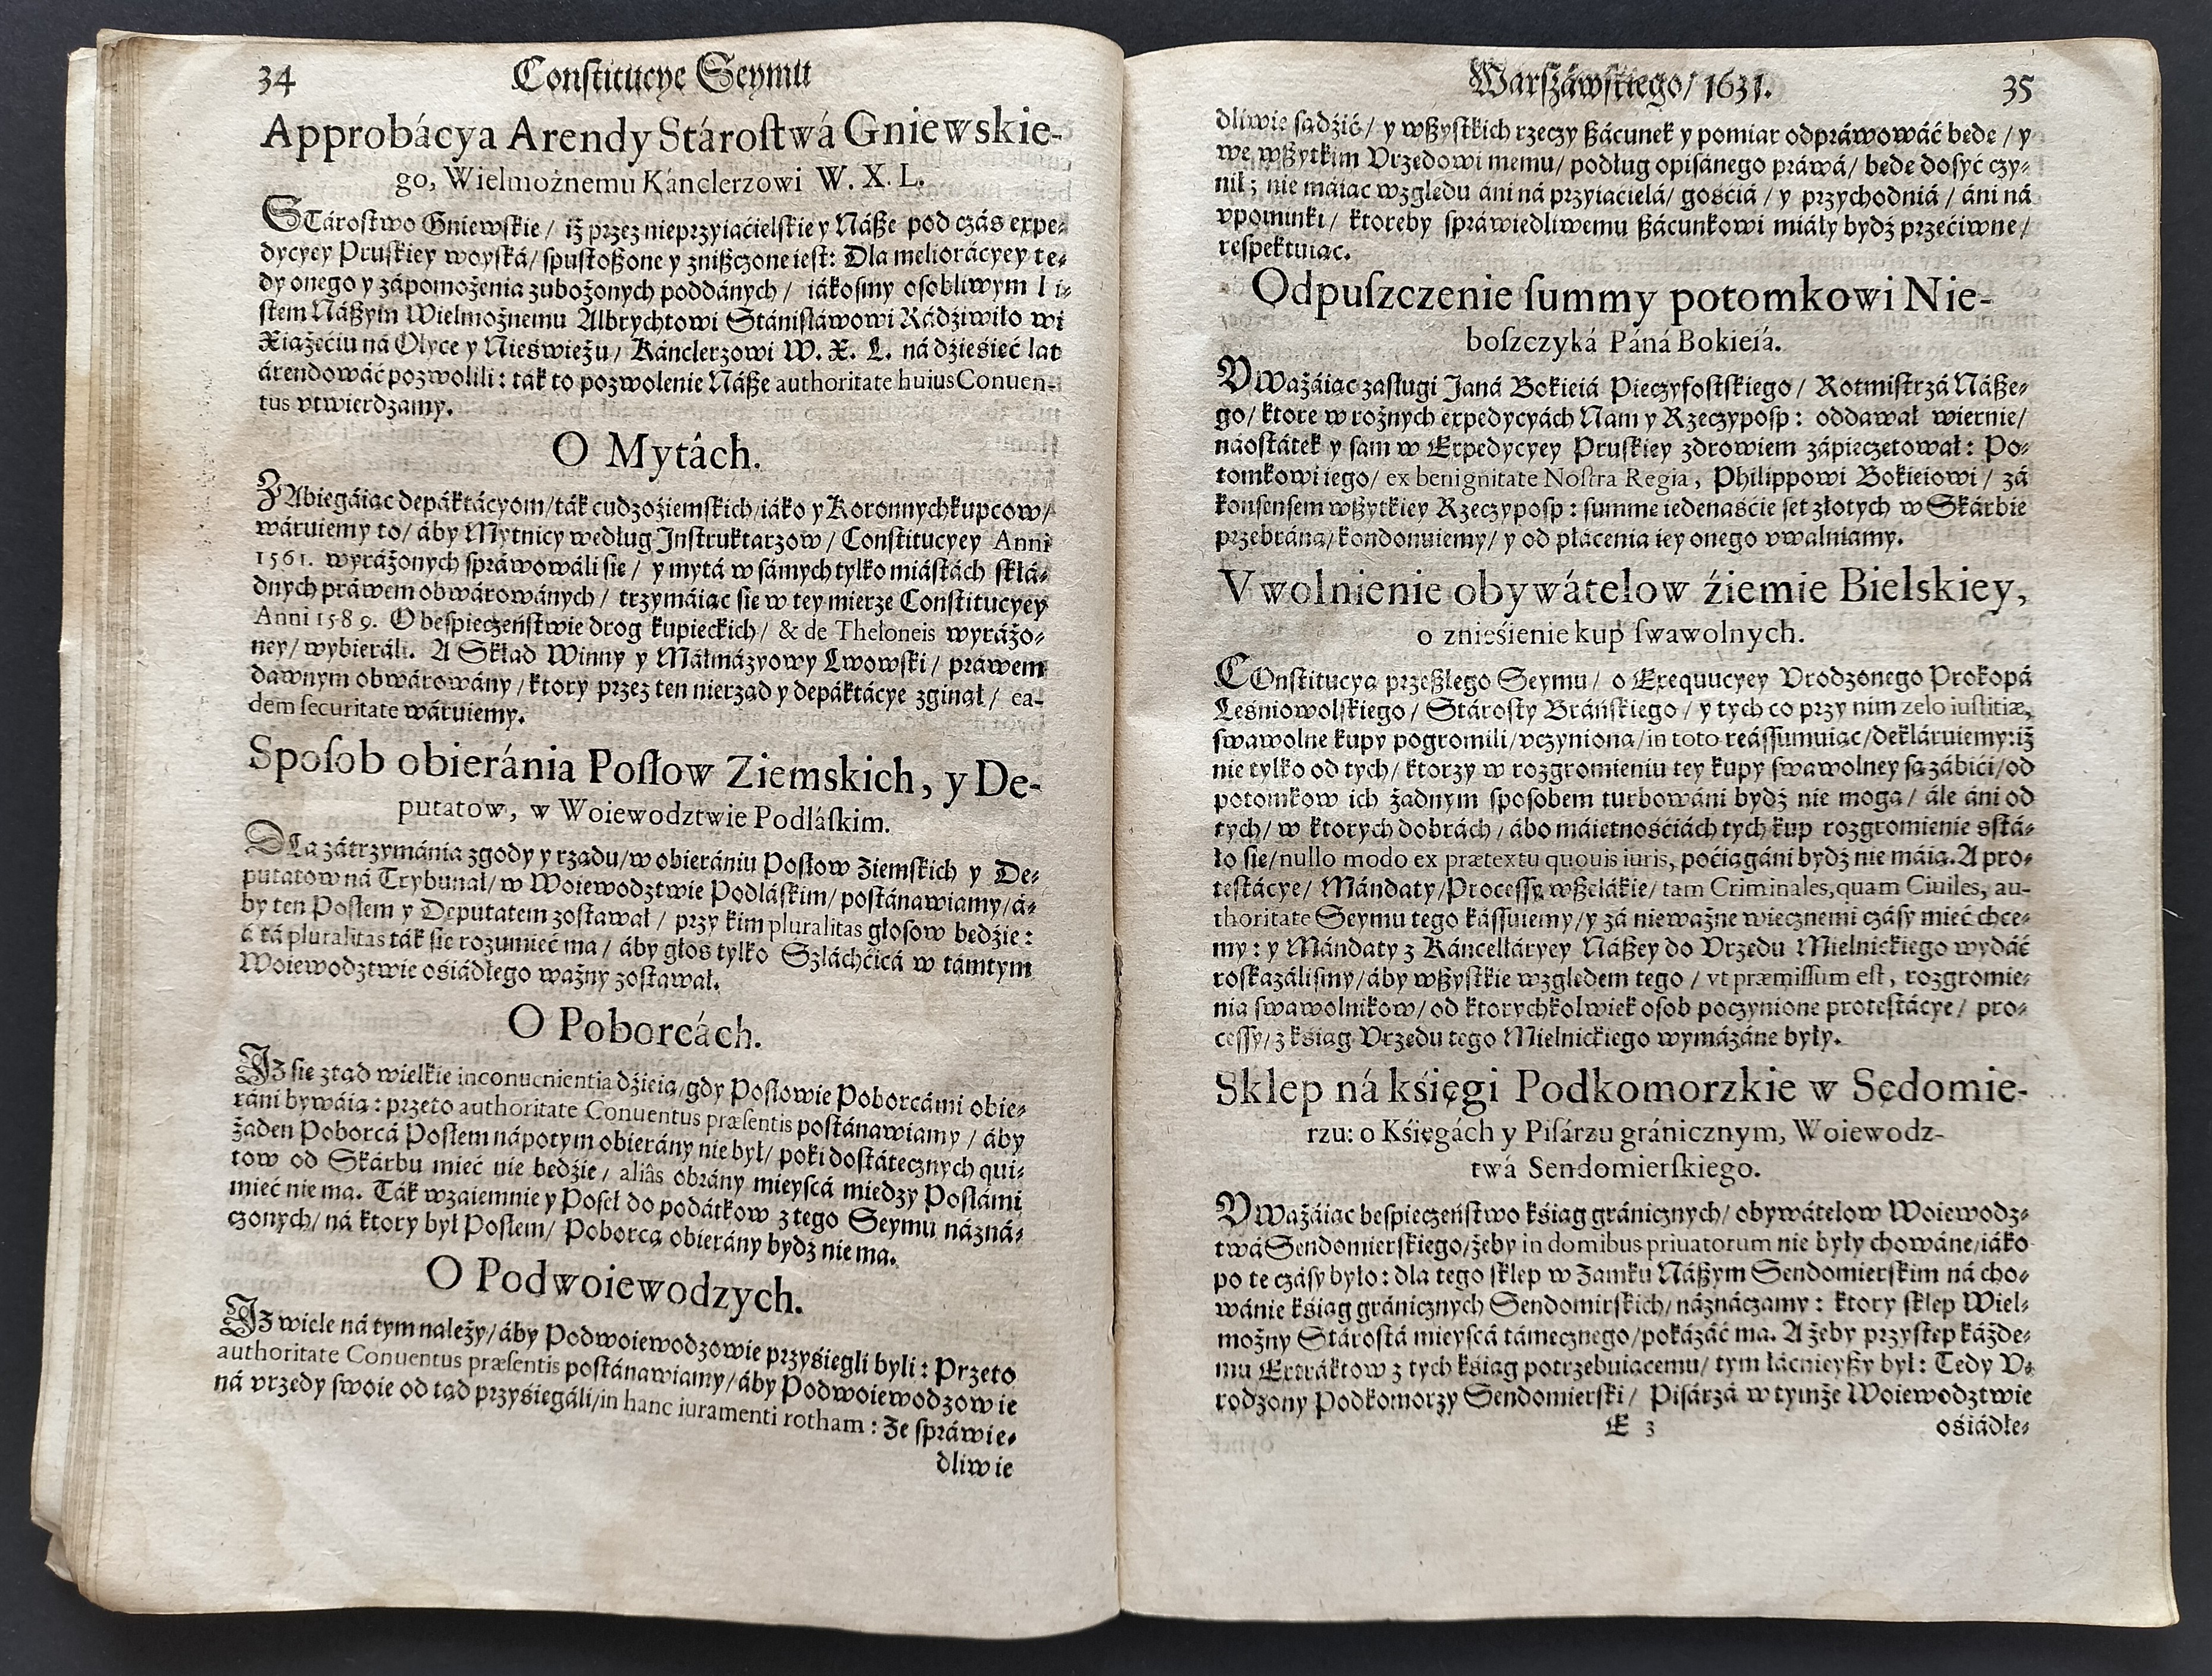 34 Constitucye Seymu
Approbácya Arendy Stárostwá Gniewskie-
go, Wielmożnemu Kánclerzowi W. X. L.
STárostwo Gniewskie / iż przez nieprzyiaćielskie y Náße pod czás expe-
dycyey Pruskiey woyská / spustoßone y znißczone iest: Dla meliorácyey te-
dy onego y zápomożenia zubożonych poddánych / iákosmy osobliwym Li-
stem Náßym Wielmożnemu Albrychtowi Stánisławowi Rádźiwiło wi
Xiążęćiu ná Olyce y Nieświeżu / Kánclerzowi W. X. L. ná dźieśięć lat
árendowáć pozwolili: ták to pozwolenie Náße authoritate huius Conuen-
tus vtwierdzamy.
O Mytách.
ZAbiegáiąc depáktácyom / ták cudzoźiemskich / iáko y Koronnych kupcow /
wáruiemy to / áby Mytnicy według Instruktarzow / Constitucyey Anni
1561. wyráżonych spráwowáli się / y mytá w sámych tylko miástách skłá-
dnych práwem obwárowánych / trzymáiąc się w tey mierze Constitucyey
Anni 1589. O bespieczeństwie drog kupieckich / & de Theloneis wyráżo-
ney / wybieráli. A Skład Winny y Máłmázyowy Lwowski / práwem
dawnym obwárowány / ktory przez ten nierząd y depáktácye zginął / ea-
dem securitate wáruiemy.
Sposob obieránia Posłow Ziemskich, y De-
putatow, w Woiewodztwie Podláskim.
DLa zátrzymánia zgody y rządu / w obierániu Posłow Ziemskich y De-
putatow ná Trybunał / w Woiewodztwie Podláskim / postánawiamy / á-
by ten Posłem y Deputatem zostawał / przy kim pluralitas głosow będźie:
á tá pluralitas ták się rozumieć ma / áby głos tylko Szláchćicá w támtym
Woiewodztwie ośiádłego ważny zostawał.
O Poborcách.
IZ się ztąd wielkie inconuenientia dźieią / gdy Posłowie Poborcámi obie-
ráni bywáią: przeto authoritate Conuentus præsentis postánawiamy / áby
żaden Poborcá Posłem nápotym obierány nie był / poki dostátecznych qui-
tow od Skárbu mieć nie będźie / aliâs obrány mieyscá miedzy Posłámi
mieć nie ma. Ták wzaiemnie y Poseł do podátkow z tego Seymu názná-
czonych / ná ktory był Posłem / Poborcą obierány bydź nie ma.
O Podwoiewodzych.
IZ wiele ná tym należy / áby Podwoiewodzowie przyśięgli byli: Przeto
authoritate Conuentus præsentis postánawiamy / áby Podwoiewodzowie
ná vrzędy swoie od tąd przyśięgáli / in hanc iuramenti rotham: Że spráwie-
dliwie
Warszáwskiego / 1631. 35
dliwie sądźić / y wßystkich rzeczy ßácunek y pomiar odpráwowáć będę / y
we wßytkim Vrzędowi memu / podług opisánego práwá / będę dosyć czy-
nił; nie máiąc względu áni ná przyiaćielá / gośćiá / y przychodniá / áni ná
vpominki / ktoreby spráwiedliwemu ßácunkowi miáły bydź przećiwne /
respektuiąc.
Odpuszczenie summy potomkowi Nie-
boszczyká Páná Bokieiá.
VWażáiąc zasługi Janá Bokieiá Pieczyfostskiego / Rotmistrzá Náße-
go / ktore w rożnych expedycyách Nam y Rzeczyposp: oddawał wiernie /
náostátek y sam w Expedycyey Pruskiey zdrowiem zápieczętował: Po-
tomkowi iego / ex benignitate Nostra Regia, Philippowi Bokieiowi / zá
konsensem wßytkiey Rzeczyposp: summę iedenaśćie set złotych w Skárbie
przebráną / kondonuiemy / y od płácenia iey onego vwalniamy.
Vwolnienie obywátelow źiemie Bielskiey,
o znieśienie kup swawolnych.
COnstitucya przeßłego Seymu / o Exequucyey Vrodzonego Prokopá
Leśniowolskiego / Stárosty Bráńskiego / y tych co przy nim zelo iustitiæ,
swawolne kupy pogromili / vczyniona / in toto reássumuiąc / dekláruiemy: iż
nie tylko od tych / ktorzy w rozgromieniu tey kupy swawolney są zábići / od
potomkow ich żadnym sposobem turbowáni bydź nie mogą / ále áni od
tych / w ktorych dobrách / ábo máiętnośćiách tych kup rozgromienie sstá-
ło się / nullo modo ex prætextu quouis iuris, poćiągáni bydź nie máią. A pro-
testácye / Mándaty / Processy wßelákie / tam Criminales, quam Ciuiles, au-
thoritate Seymu tego kássuiemy / y zá nieważne wiecznemi czásy mieć chce-
my: y Mándaty z Káncelláryey Náßey do Vrzędu Mielnickiego wydáć
roskazálismy / áby wßystkie względem tego / vt præmissum est, rozgromie-
nia swawolnikow / od ktorychkolwiek osob poczynione protestácye / pro-
cessy / z kśiąg Vrzędu tego Mielnickiego wymázáne były.
Sklep ná kśięgi Podkomorzkie w Sędomie-
rzu: o Kśięgách y Pisárzu gránicznym, Woiewodz-
twá Sendomierskiego.
VWażáiąc bespieczeństwo kśiąg gránicznych / obywátelow Woiewodz-
twá Sendomierskiego / żeby in domibus priuatorum nie były chowáne / iáko
po te czásy było: dla tego sklep w Zamku Náßym Sendomierskim ná cho-
wánie kśiąg gránicznych Sendomirskich / náznáczamy: ktory sklep Wiel-
możny Stárostá mieyscá támecznego / pokázáć ma. A żeby przystęp káżde-
mu Extráktow z tych kśiąg potrzebuiącemu / tym łácnieyßy był: Tedy V-
rodzony Podkomorzy Sendomierski / Pisárzá w tymże Woiewodztwie
E 3 ośiádłe-